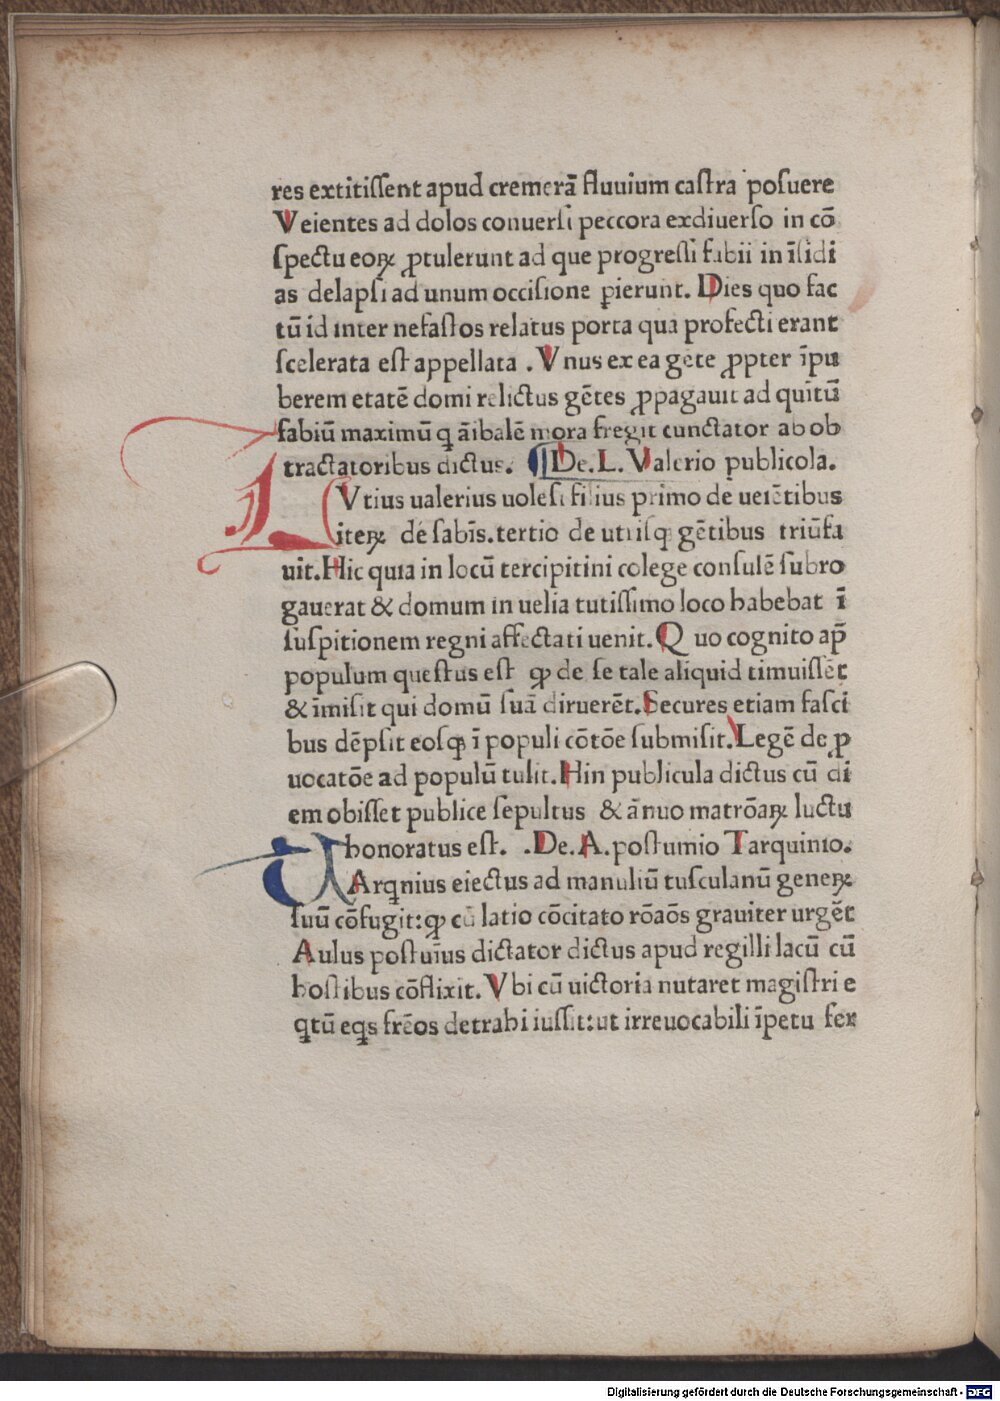 res extitiſſent apud cremerā fluuium caſtra poſuere
Veientes ad dolos conuerſi peccora exdiuerſo in cō
ſpectu eoꝝ ꝓtulerunt ad que progreſſi fabii in īſidi
as delapſi ad unum occiſione ꝑierunt. Dies quo fac
tū id inter nefaſtos relatus porta qua profecti erant
ſcelerata eſt appellata . Vnus ex ea gēte ꝓpter īpu
berem etatē domi relictus gētes ꝓpagauit ad quitū
fabiū maximū ꝗ āibalē mora fregit cunctator ab ob
tractatoribus dictus. De. L. Valerio publicola.
LVtius ualerius uoleſi filius primo de ueiētibus
iteꝝ de ſabīs. tertio de utriſqꝫ gētibus triūfa
uit. Hic quia in locū tercipitini colege conſulē ſubro
gauerat & domum in uelia tutiſſimo loco habebat ī
ſuſpitionem regni affectati uenit. Quo cognito ap̄
populum queſtus eſt ꝙ de ſe tale aliquid timuiſſēt
& īmiſit qui domū ſuā diruerēt. Secures etiam faſci
bus dēpſit eoſqꝫ ī populi cōtōe ſubmiſit. Legē de ꝓ
uocatōe ad populū tulit. Hin publicula dictus cū di
em obiſſet publice ſepultus & ānuo matrōaꝝ luctu
honoratus eſt. .De. A. poſtumio Tarquinio.
TArqnius eiectus ad manuliū tuſculanū geneꝝ
ſuū cōfugit: ꝙ cū latio cōcitato rōaōs grauiter urgēt
Aulus poſtuīus dictator dictus apud regilli lacū cū
hoſtibus cōflixit. Vbi cū uictoria nutaret magiſtri e
ꝗtū eqs frēos detrahi iuſſit: ut irreuocabili īpetu fer
Digitalisierung gefördert durch die Deutsche Forschungsgemeinschaft - DFG